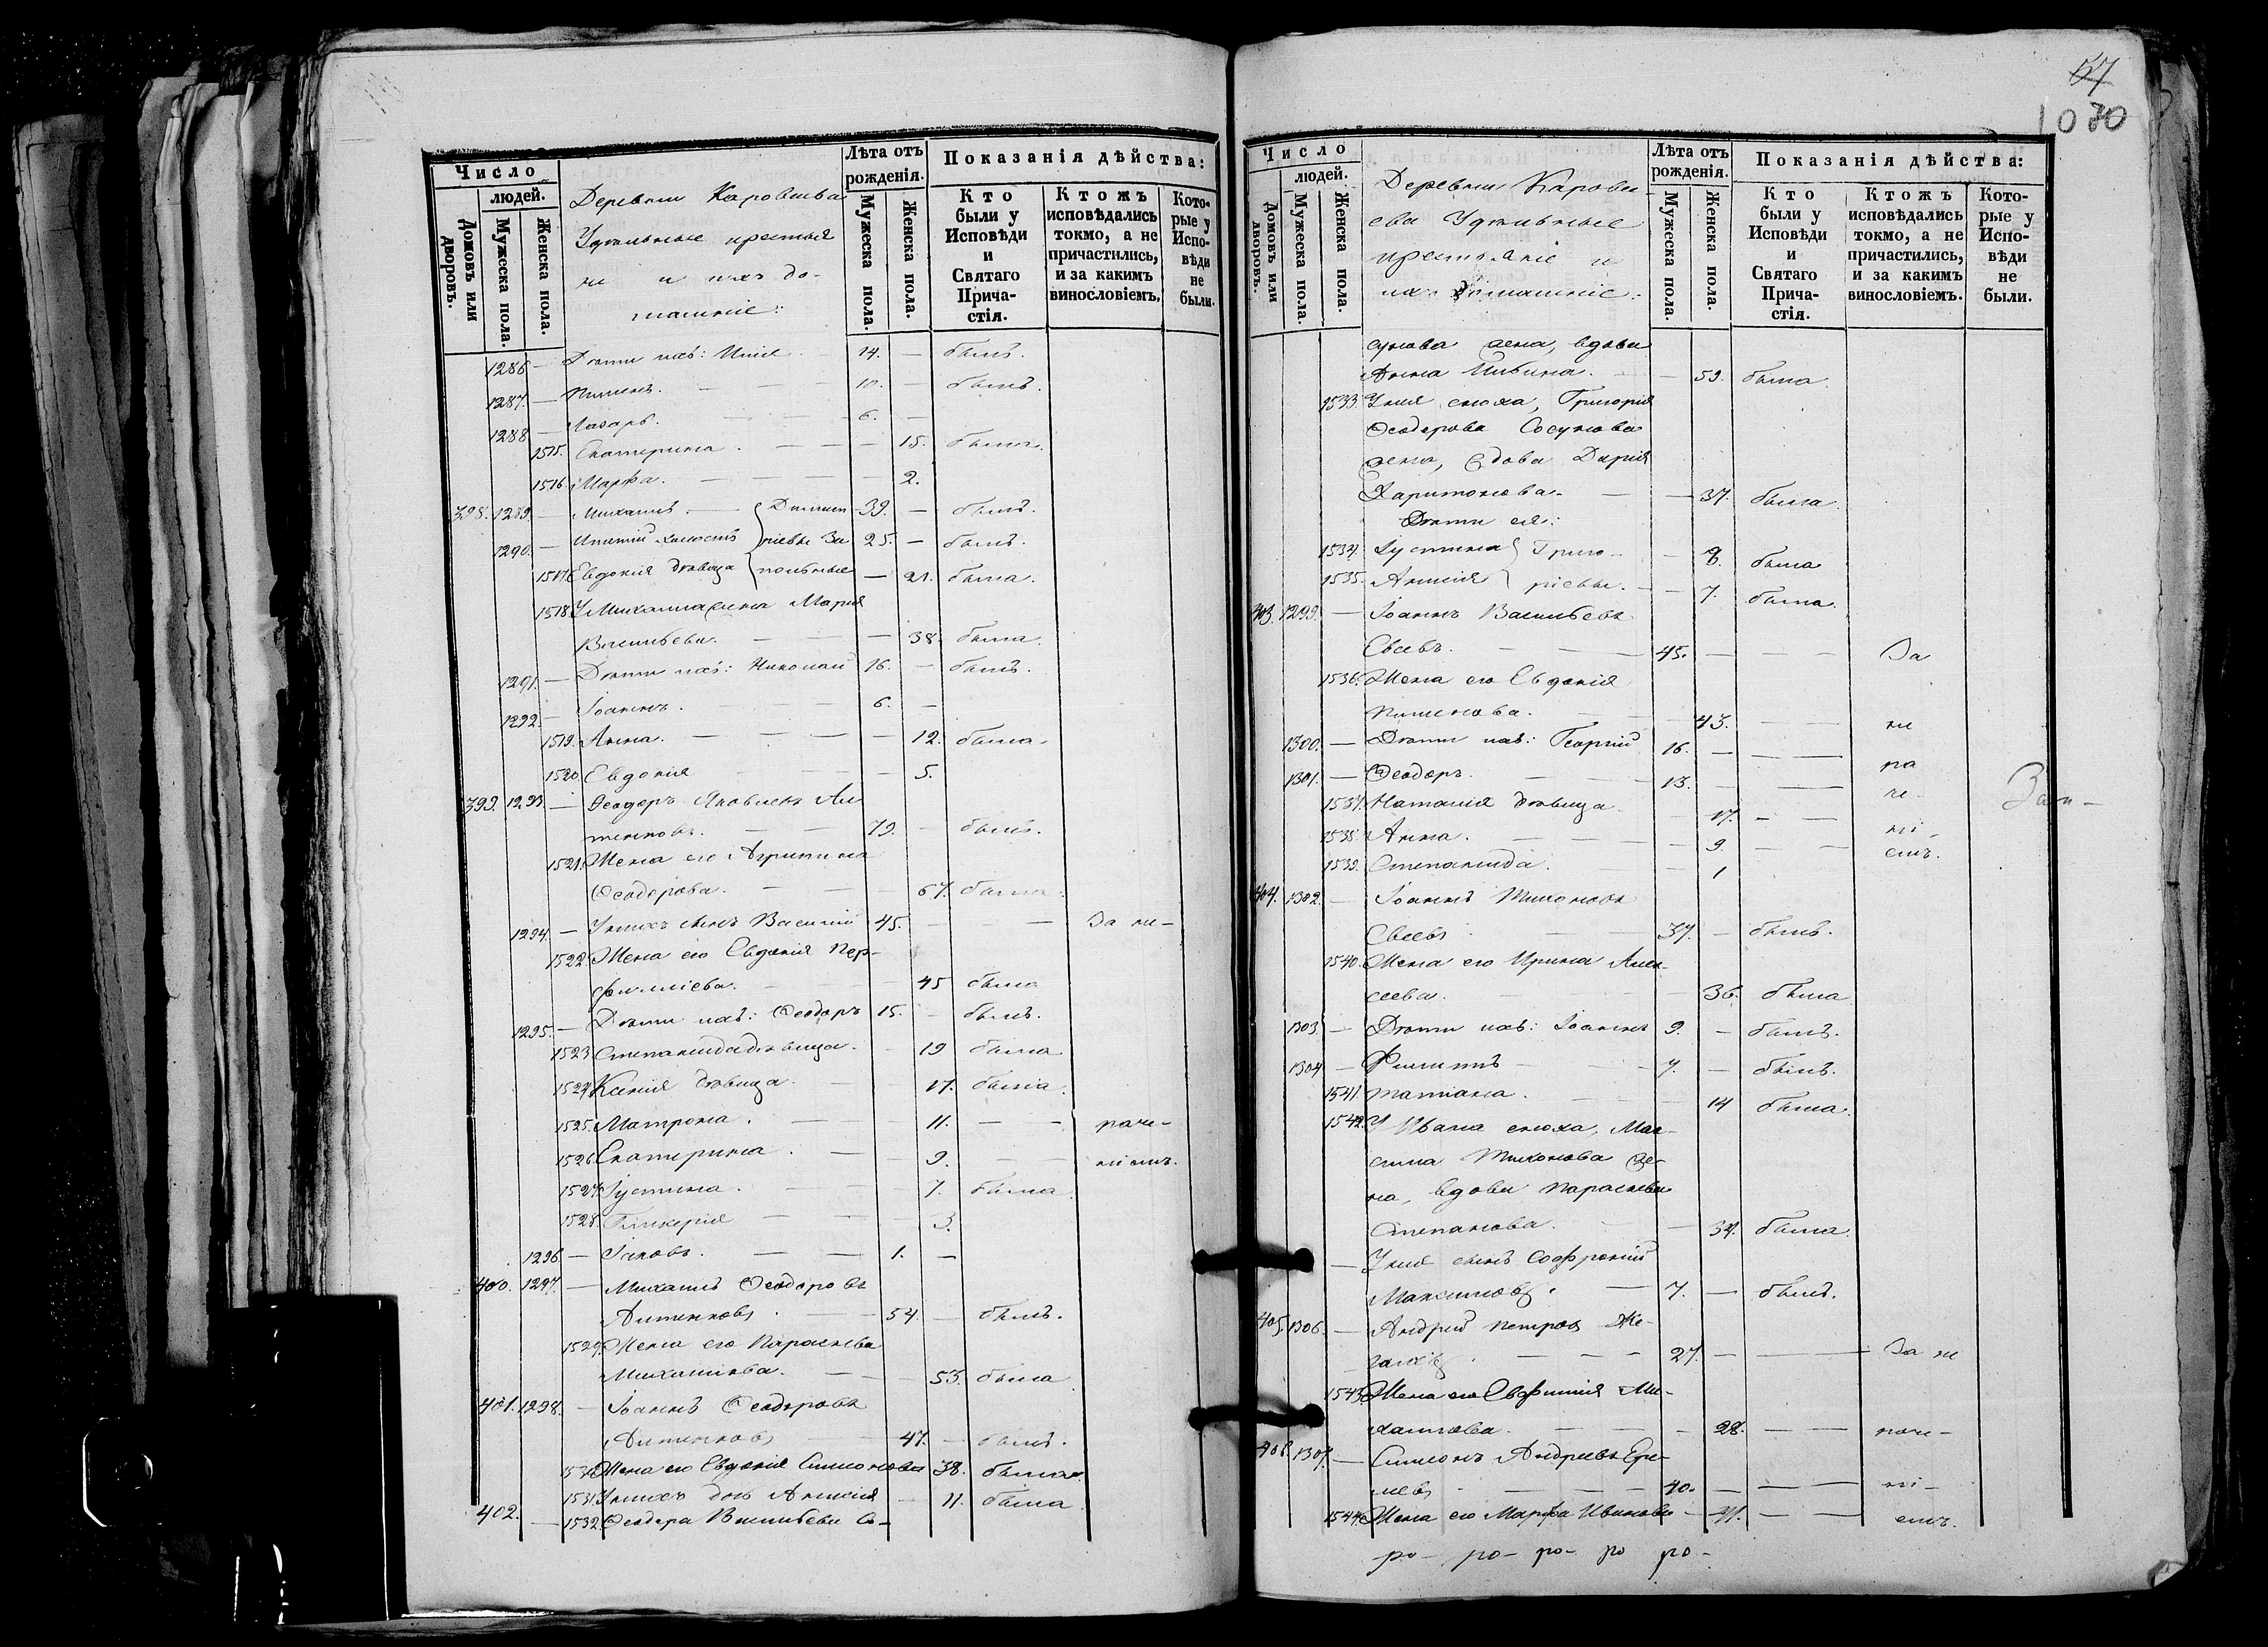 57
1070
Число
людей.
Домовъ или дворовъ.
Мужеска пола.
Женска пола.
Деревни
Удѣльные крестья
не и ихъ до-
машніе:
Лѣта отъ рожденія.
Мужеска пола.
Женска пола.
Показанія дѣйства:
Кто были у Исповѣди и Святаго Причастія.
Ктожъ исповѣдались токмо, а не причастились, и за какимъ винословіемъ.
Которые у Исповѣди не были.
1286 — Дѣти ихъ: Илія 14. — былъ.
1287. — Пименъ. — 10. — былъ.
1288 — Лазарь. 6. —
1515. Екатерина. — — — 15. была.
1516. Марфа. — — — — 2.
398. 1289 — Михаилъ. — 39. — былъ.
1290. — холостъ 25. — былъ.
1517. Евдокія дѣвица — 21. была.
1518. У Михаила жена Марія
Васильева. — — — 38. была
1291. — Дѣти ихъ: Николай 16. — былъ.
1292. — Іоаннъ. — 6. —
1519. Анна. — — — — 12. была.
1520. Евдокія — — — 5.
399. 1293. — Ѳеодоръ Яковлевъ Ан
тенковъ. — — 79. — былъ.
1521. Жена его Агрипина
Ѳеодорова. — — — 67. была.
1294. — У нихъ сынъ Василій 45. — — — За не-
1522. Жена его Евдокія Пор-
фиріева. — 45 была
1295. — Дѣти ихъ: Ѳеодоръ 15. — былъ.
1523. Степанида дѣвица. — 19 была
1524. Ксенія дѣвица. — 17. была.
1525. Матрона. — — 11. — — раче-
1526. Екатерина. — — 9. — — ніемъ.
1527. Іустина. — — 7. была
1528. Гликерія — — — 3.
1296 — Іаковъ. — — 1. —
400. 1297. — Михаилъ Ѳеодоровъ
Антенковъ. — 54. — былъ.
1529. Жена его Параскева
Михаилова. — — 53. была
401. 1298. — Іоаннъ Ѳеодоровъ
Антенковъ — 47. — былъ.
1530. Жена его Евдокія Симеонова 38. была.
1531. У нихъ дочь Анисія — 11. была
402. — 1532. Ѳеодора Васильева Со-
Число
людей.
Домовъ или дворовъ.
Мужеска пола.
Женска пола.
Деревни
Удѣльные
крестьяне и
ихъ домашніе:
Лѣта отъ рожденія.
Мужеска пола.
Женска пола.
Показанія дѣйства:
Кто были у Исповѣди и Святаго Причастія.
Ктожъ исповѣдались токмо, а не причастились, и за какимъ винословіемъ.
Которые у Исповѣди не были.
сунова жена, вдова
Анна — 59. была.
1533. У нея сноха, Григорія
Ѳеодорова Сосунова
жена, вдова Дарія
Харитонова. — — 37. была.
Дѣти ея:
1534. Іустина } Григо- — 8. была
1535. Анисія } ріевы. — — 7. была.
403. 1299. — Іоаннъ Васильевъ
Евсевъ. — — 45. — — — За
1536. Жена его Евдокія
Пименова. — 43. — — не
1300. — Дѣти ихъ: Георгій 16. — — — ра
1301. — Ѳеодоръ. — — 13. — — че-
1537. Наталія дѣвица — 17. — — ні-
1538. Анна. — — — 9. — — емъ.
1539. Степанида. — 1
404. 1302. — Іоаннъ Тихоновъ
Евсевъ — — 37. — былъ.
1540. Жена его Ирина Алек-
сеева. — — 36. была
1303. — Дѣти ихъ: Іоаннъ 9. — былъ.
1304 — Филиппъ — — 7. — былъ.
1541. Татіана. — — 14 была.
1542. У Ивана сноха, Мак-
сима Тихонова же-
на, вдова Параскева
Степанова. — — 34. была.
— У нея сынъ Софроній
Максимовъ. — 7. — былъ.
405. 1306. — Андрей Петровъ Же-
27. — — За не
1543. Жена его Евфимія Ми-
хаилова. — — 28. — — раче-
406. 1307. — Симеонъ Андреевъ Ере-
40. — — ні-
1544. Жена его Марфа Иванова — 41. — — емъ.
ро- ро- ро- ро ро-